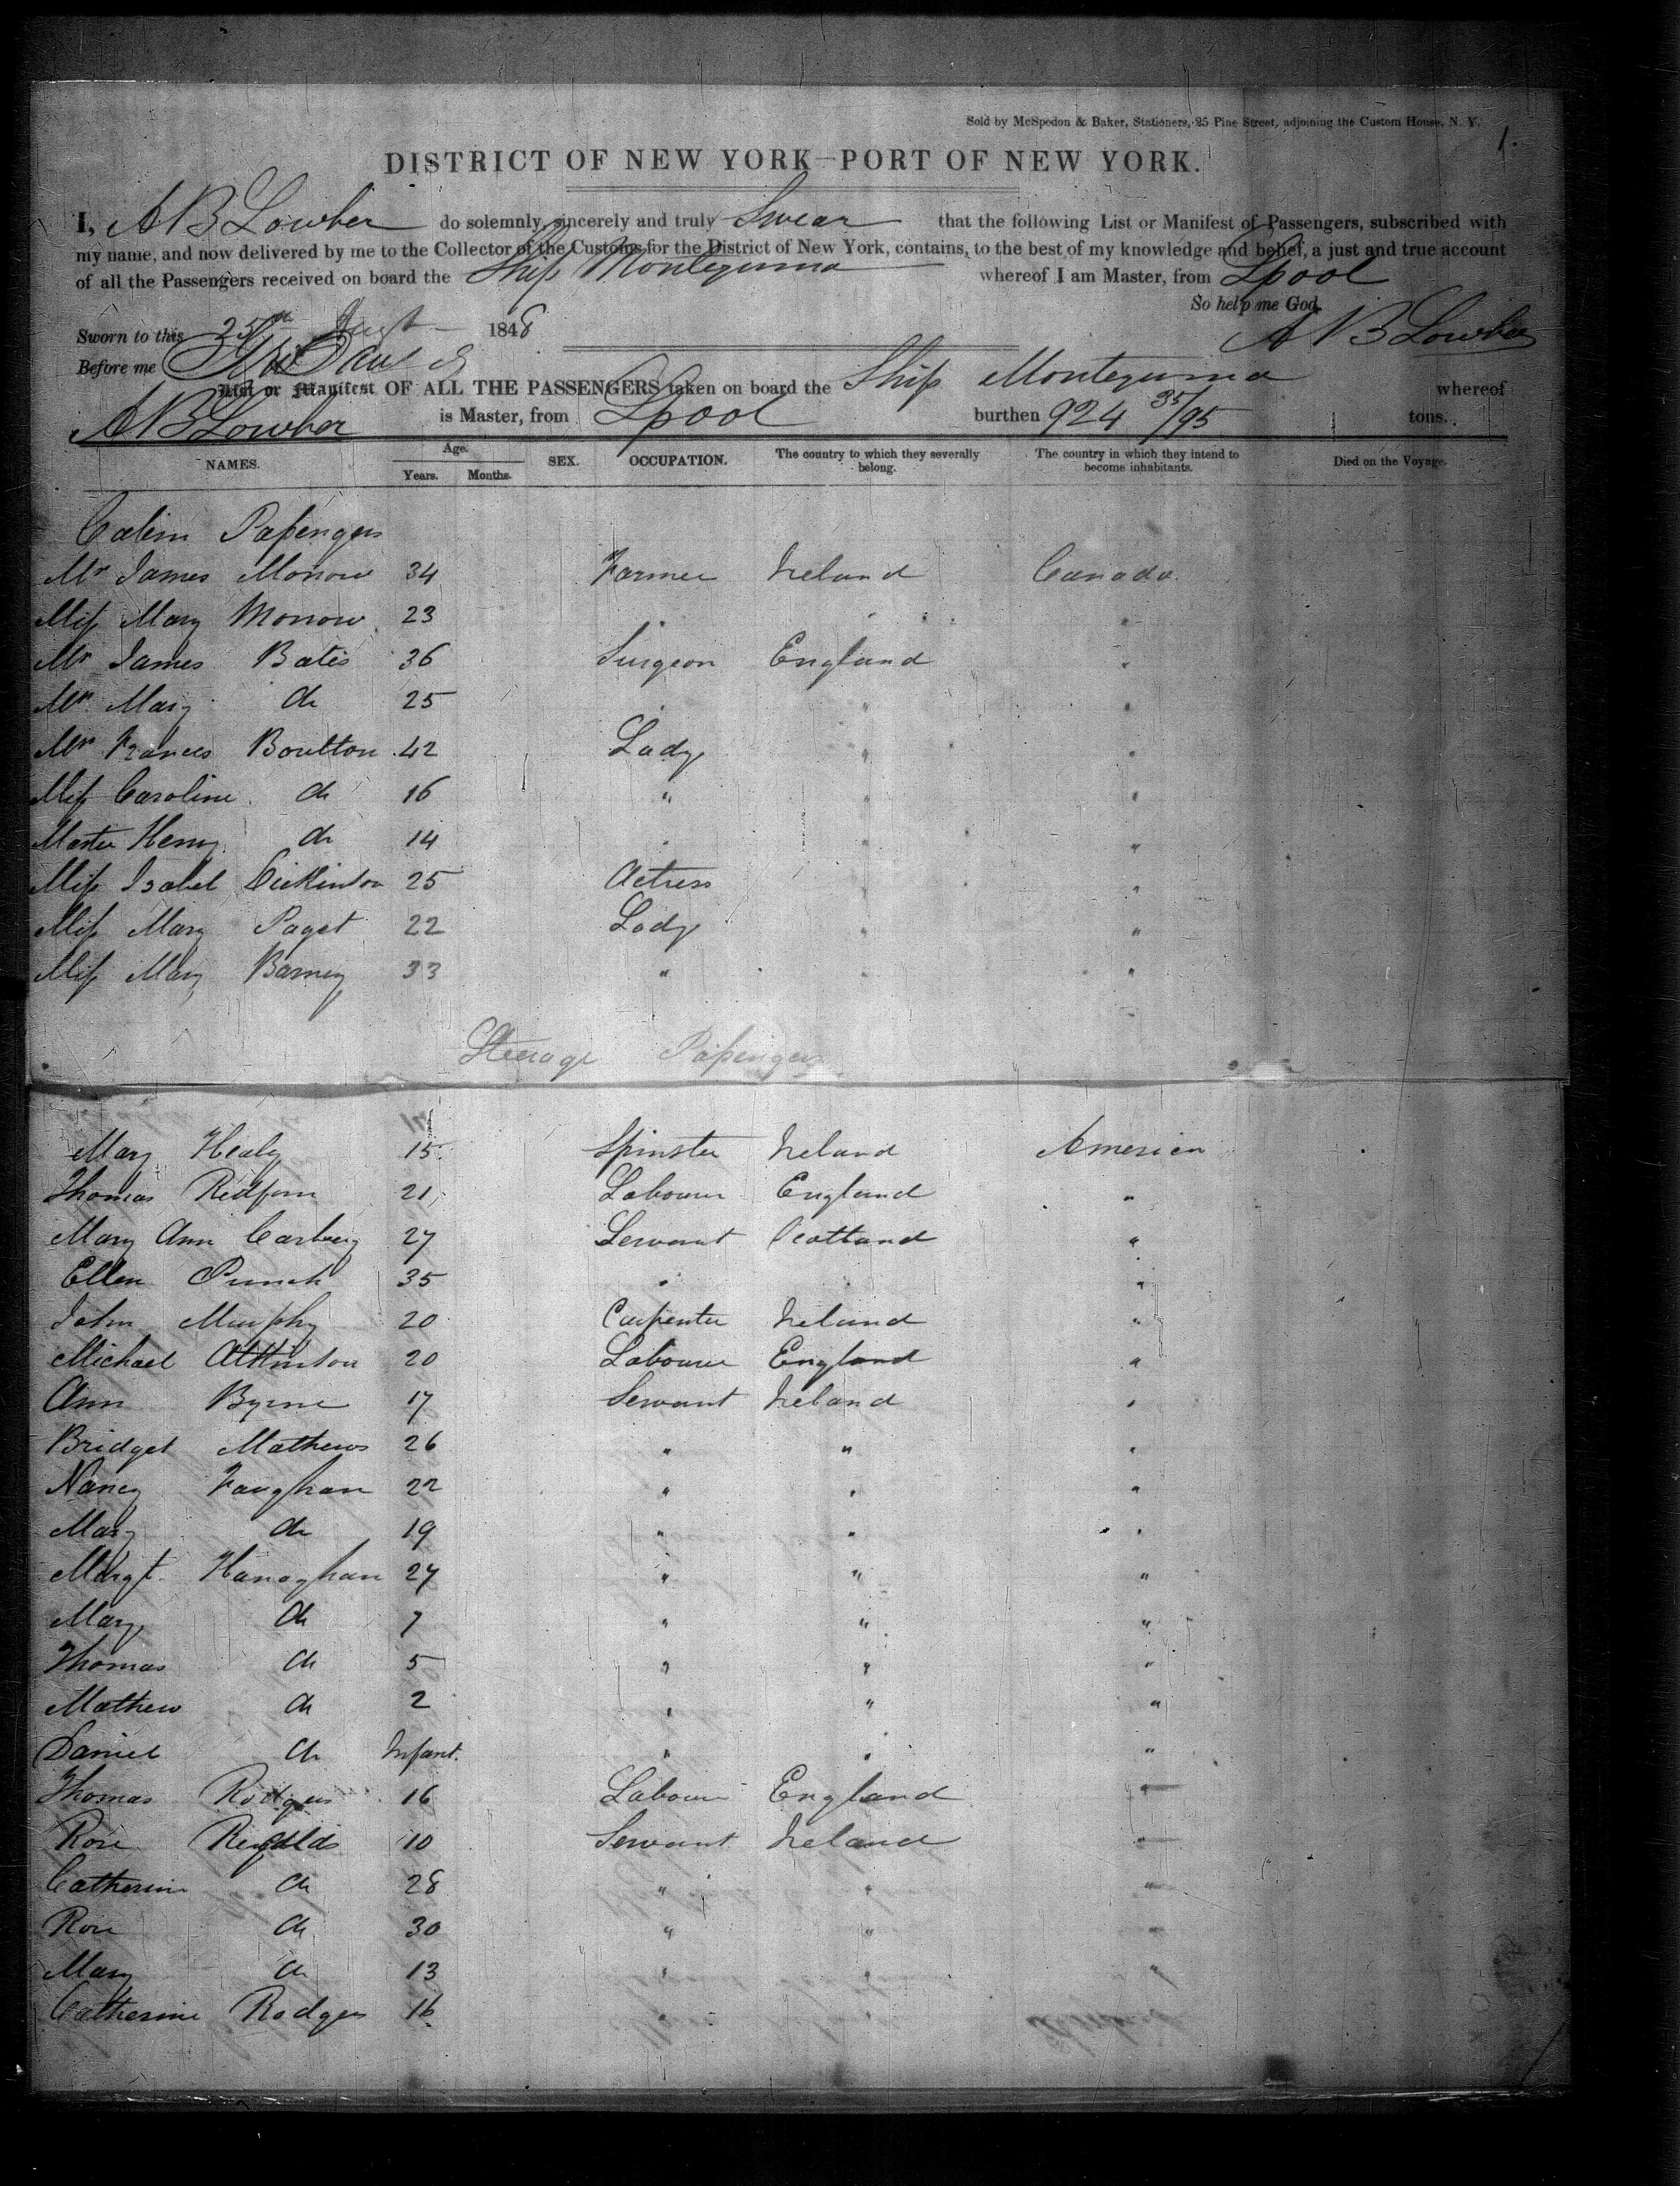 Sold by McSpedon & Baker, Stationers, 25 Pine Street, adjoining the Custom House, N. Y.
1.
DISTRICT OF NEW YORK—PORT OF NEW YORK.
I, A B Lowber do solemnly, sincerely and truly Swear that the following List or Manifest of Passengers, subscribed with
my name, and now delivered by me to the Collector of the Customs for the District of New York, contains, to the best of my knowledge and belief, a just and true account
of all the Passengers received on board the Ship Montezuma whereof I am Master, from Lpool
So help me God.
Sworn to this 25th Augt 1848 A B Lowber
Before me
List or Manifest OF ALL THE PASSENGERS taken on board the Ship Montezuma whereof
A B Lowber is Master, from Lpool burthen 924 35/95 tons.
NAMES. Age. Years. Months. SEX. OCCUPATION. The country to which they severally belong. The country in which they intend to become inhabitants. Died on the Voyage.
Cabin Passengers
Mr James Morrow 34 Farmer Ireland Canada
Miss Mary Morrow 23 " " "
Mr James Bates 36 Surgeon England "
Mrs Mary do 25 " " "
Mrs Frances Boulton 42 Lady " "
Miss Caroline do 16 " " "
Master Henry do 14 " " "
Miss Isabel Dickinson 25 Actress " "
Miss Mary Paget 22 Lady " "
Miss Mary Barney 33 " " "
Steerage Passengers
Mary Healy 15 Spinster Ireland America
Thomas Redfern 21 Labourer England "
Mary Ann Carbery 27 Servant Scotland "
Ellen Punch 35 " " "
John Murphy 20 Carpenter Ireland "
Michael Atkinson 20 Labourer England "
Ann Byrne 17 Servant Ireland "
Bridget Mathews 26 " " "
Nancy Faughan 22 " " "
Mary do 19 " " "
Margt. Hanaghan 27 " " "
Mary do 7 " " "
Thomas do 5 " " "
Mathew do 2 " " "
Daniel do Infant. " " "
Thomas Rodgers 16 Labourer England "
Rose Reynolds 10 Servant Ireland "
Catherine do 28 " " "
Rose do 30 " " "
Mary do 13 " " "
Catherine Rodgers 16 "